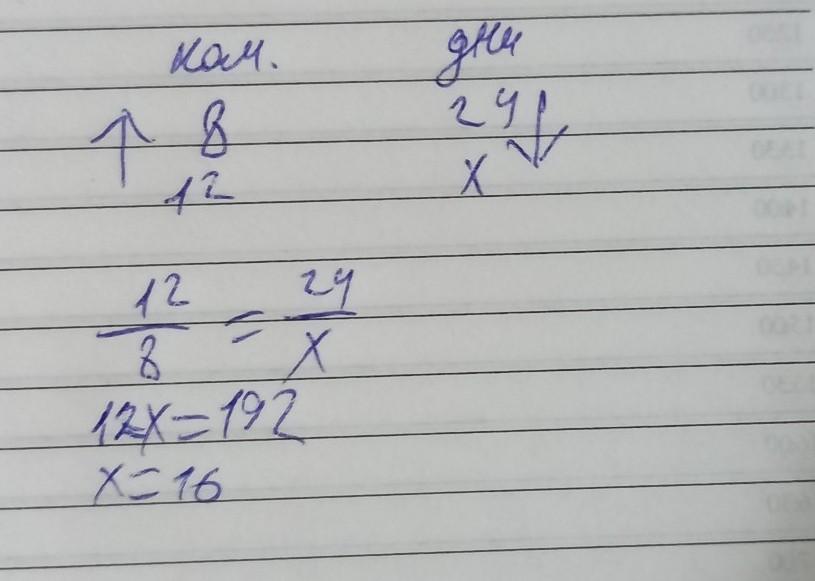 кол. дни
↑ 8 24 ↓
12 x
12/8 = 24/x
12x=192
x=16